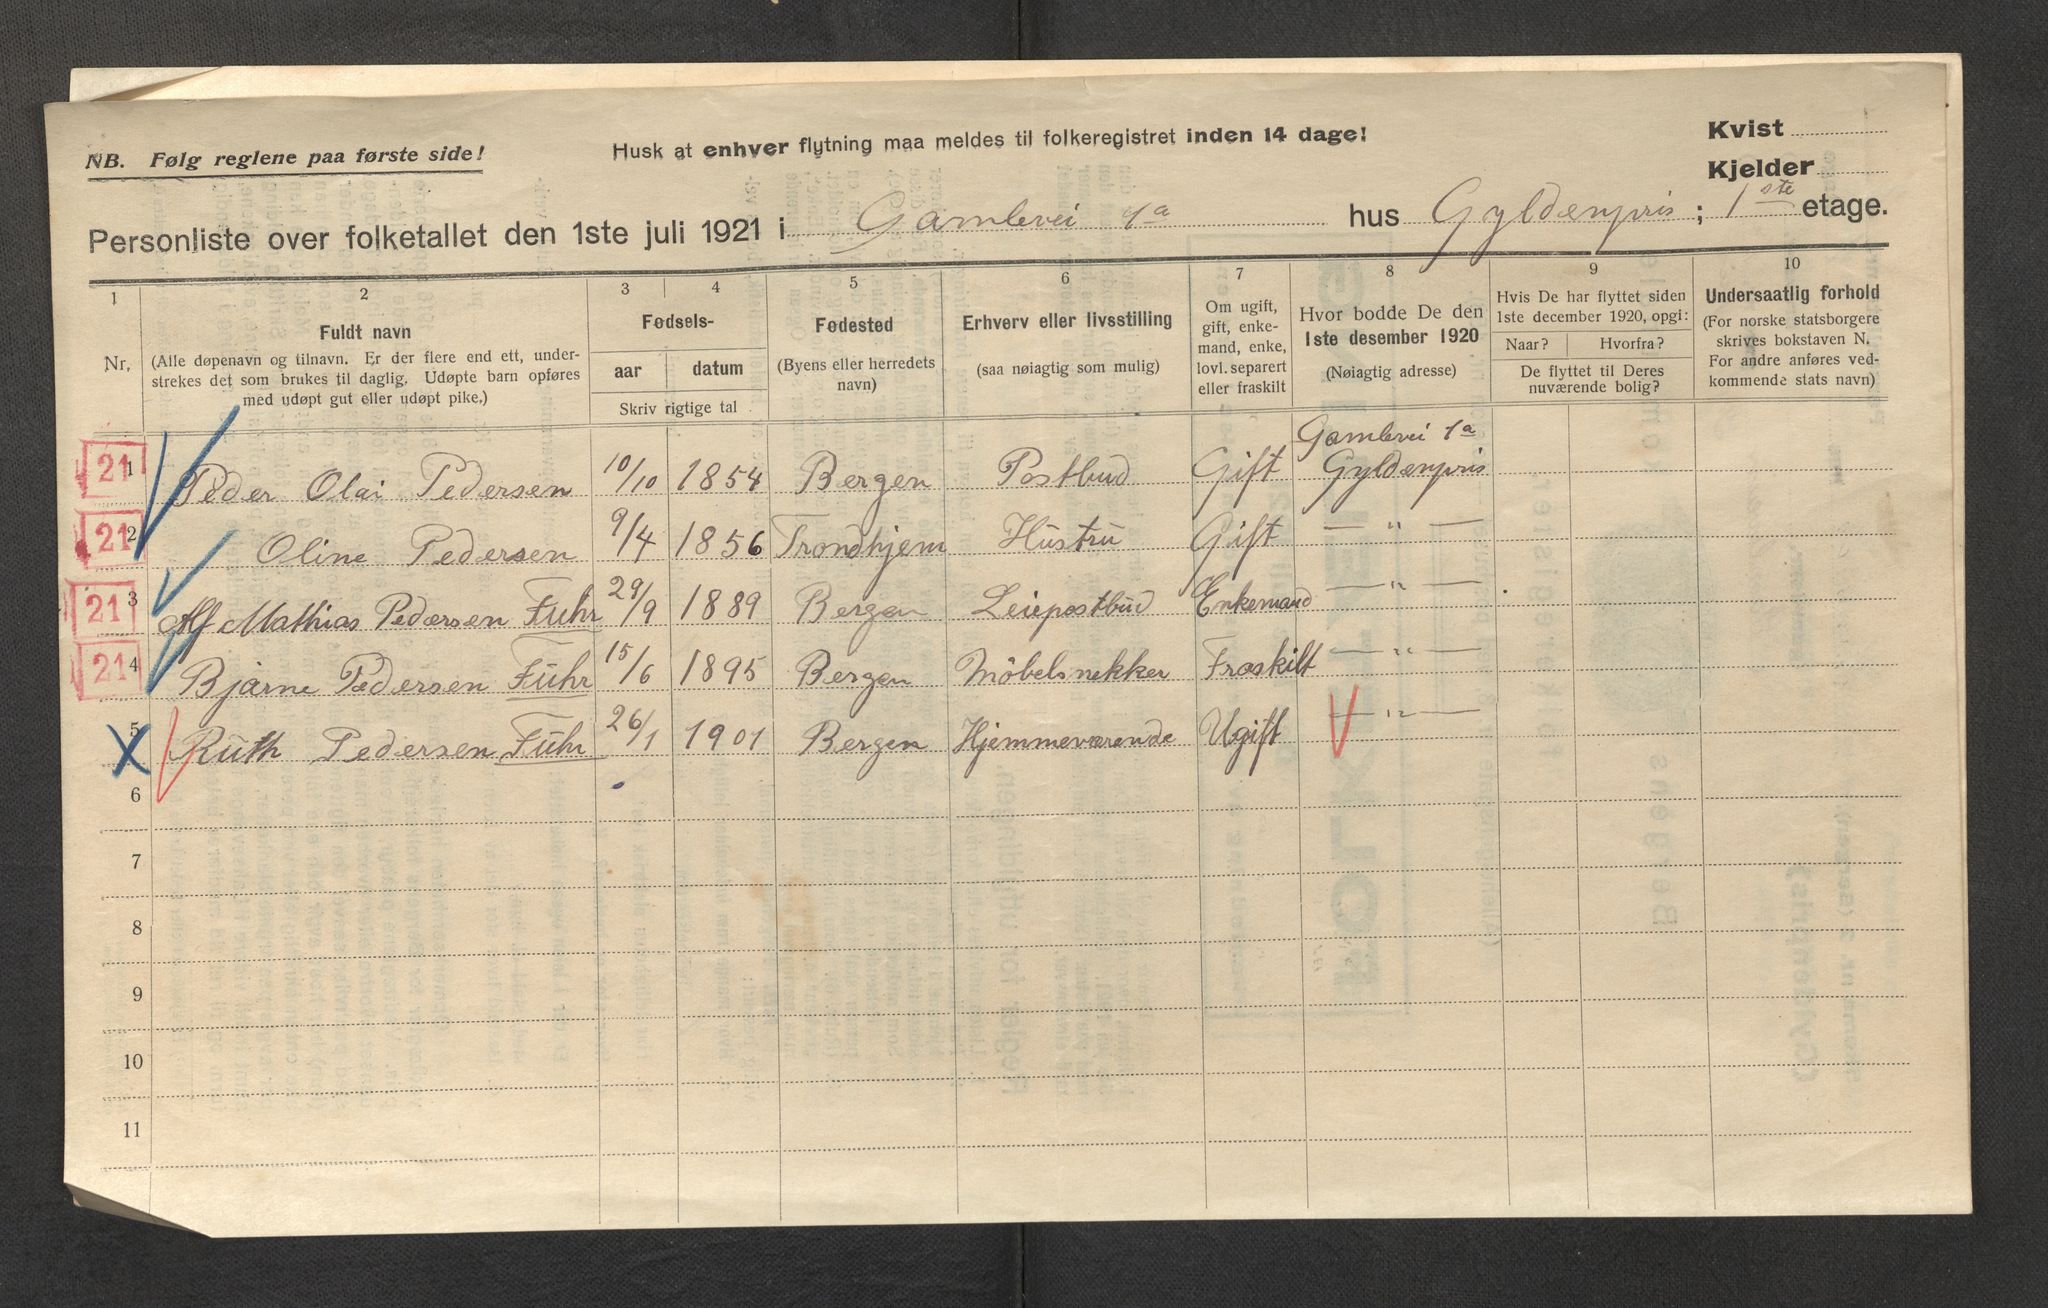 NB. Følg reglene paa første side!
Husk at enhver flytning maa meldes til folkeregistret inden 14 dage!
Kvist
Kjelder
Personliste over folketallet den 1ste juli 1921 i Gamlevei 1a hus Gyldenpris; 1ste etage.
1 2 3 4 5 6 7 8 9 10
Nr.
Fuldt navn
(Alle døpenavn og tilnavn. Er der flere end ett, under-
strekes det som brukes til daglig. Udøpte barn opføres
med udøpt gut eller udøpt pike.)
Fødsels-
aar datum
Skriv rigtige tal
Fødested
(Byens eller herredets
navn)
Erhverv eller livsstilling
(saa nøiagtig som mulig)
Om ugift,
gift, enke-
mand, enke,
lovl. separert
eller fraskilt
Hvor bodde De den
1ste desember 1920
(Nøiagtig adresse)
Hvis De har flyttet siden
1ste december 1920, opgi:
Naar? Hvorfra?
De flyttet til Deres
nuværende bolig?
Undersaatlig forhold
(For norske statsborgere
skrives bokstaven N.
For andre anføres ved-
kommende stats navn)
Gamlevei 1a
21 1 Peder Olai Pedersen 10/10 1854 Bergen Postbud Gift Gyldenpris
21 2 Oline Pedersen 9/4 1856 Trondhjem Hustru Gift — " —
21 3 Alf Mathias Pedersen Fuhr 29/9 1889 Bergen Leiepostbud Enkemand — " —
21 4 Bjarne Pedersen Fuhr 15/6 1895 Bergen Möbelsnekker Fraskilt — " —
5 Ruth Pedersen Fuhr 26/1 1901 Bergen Hjemmeværende Ugift — " —
6
7
8
9
10
11